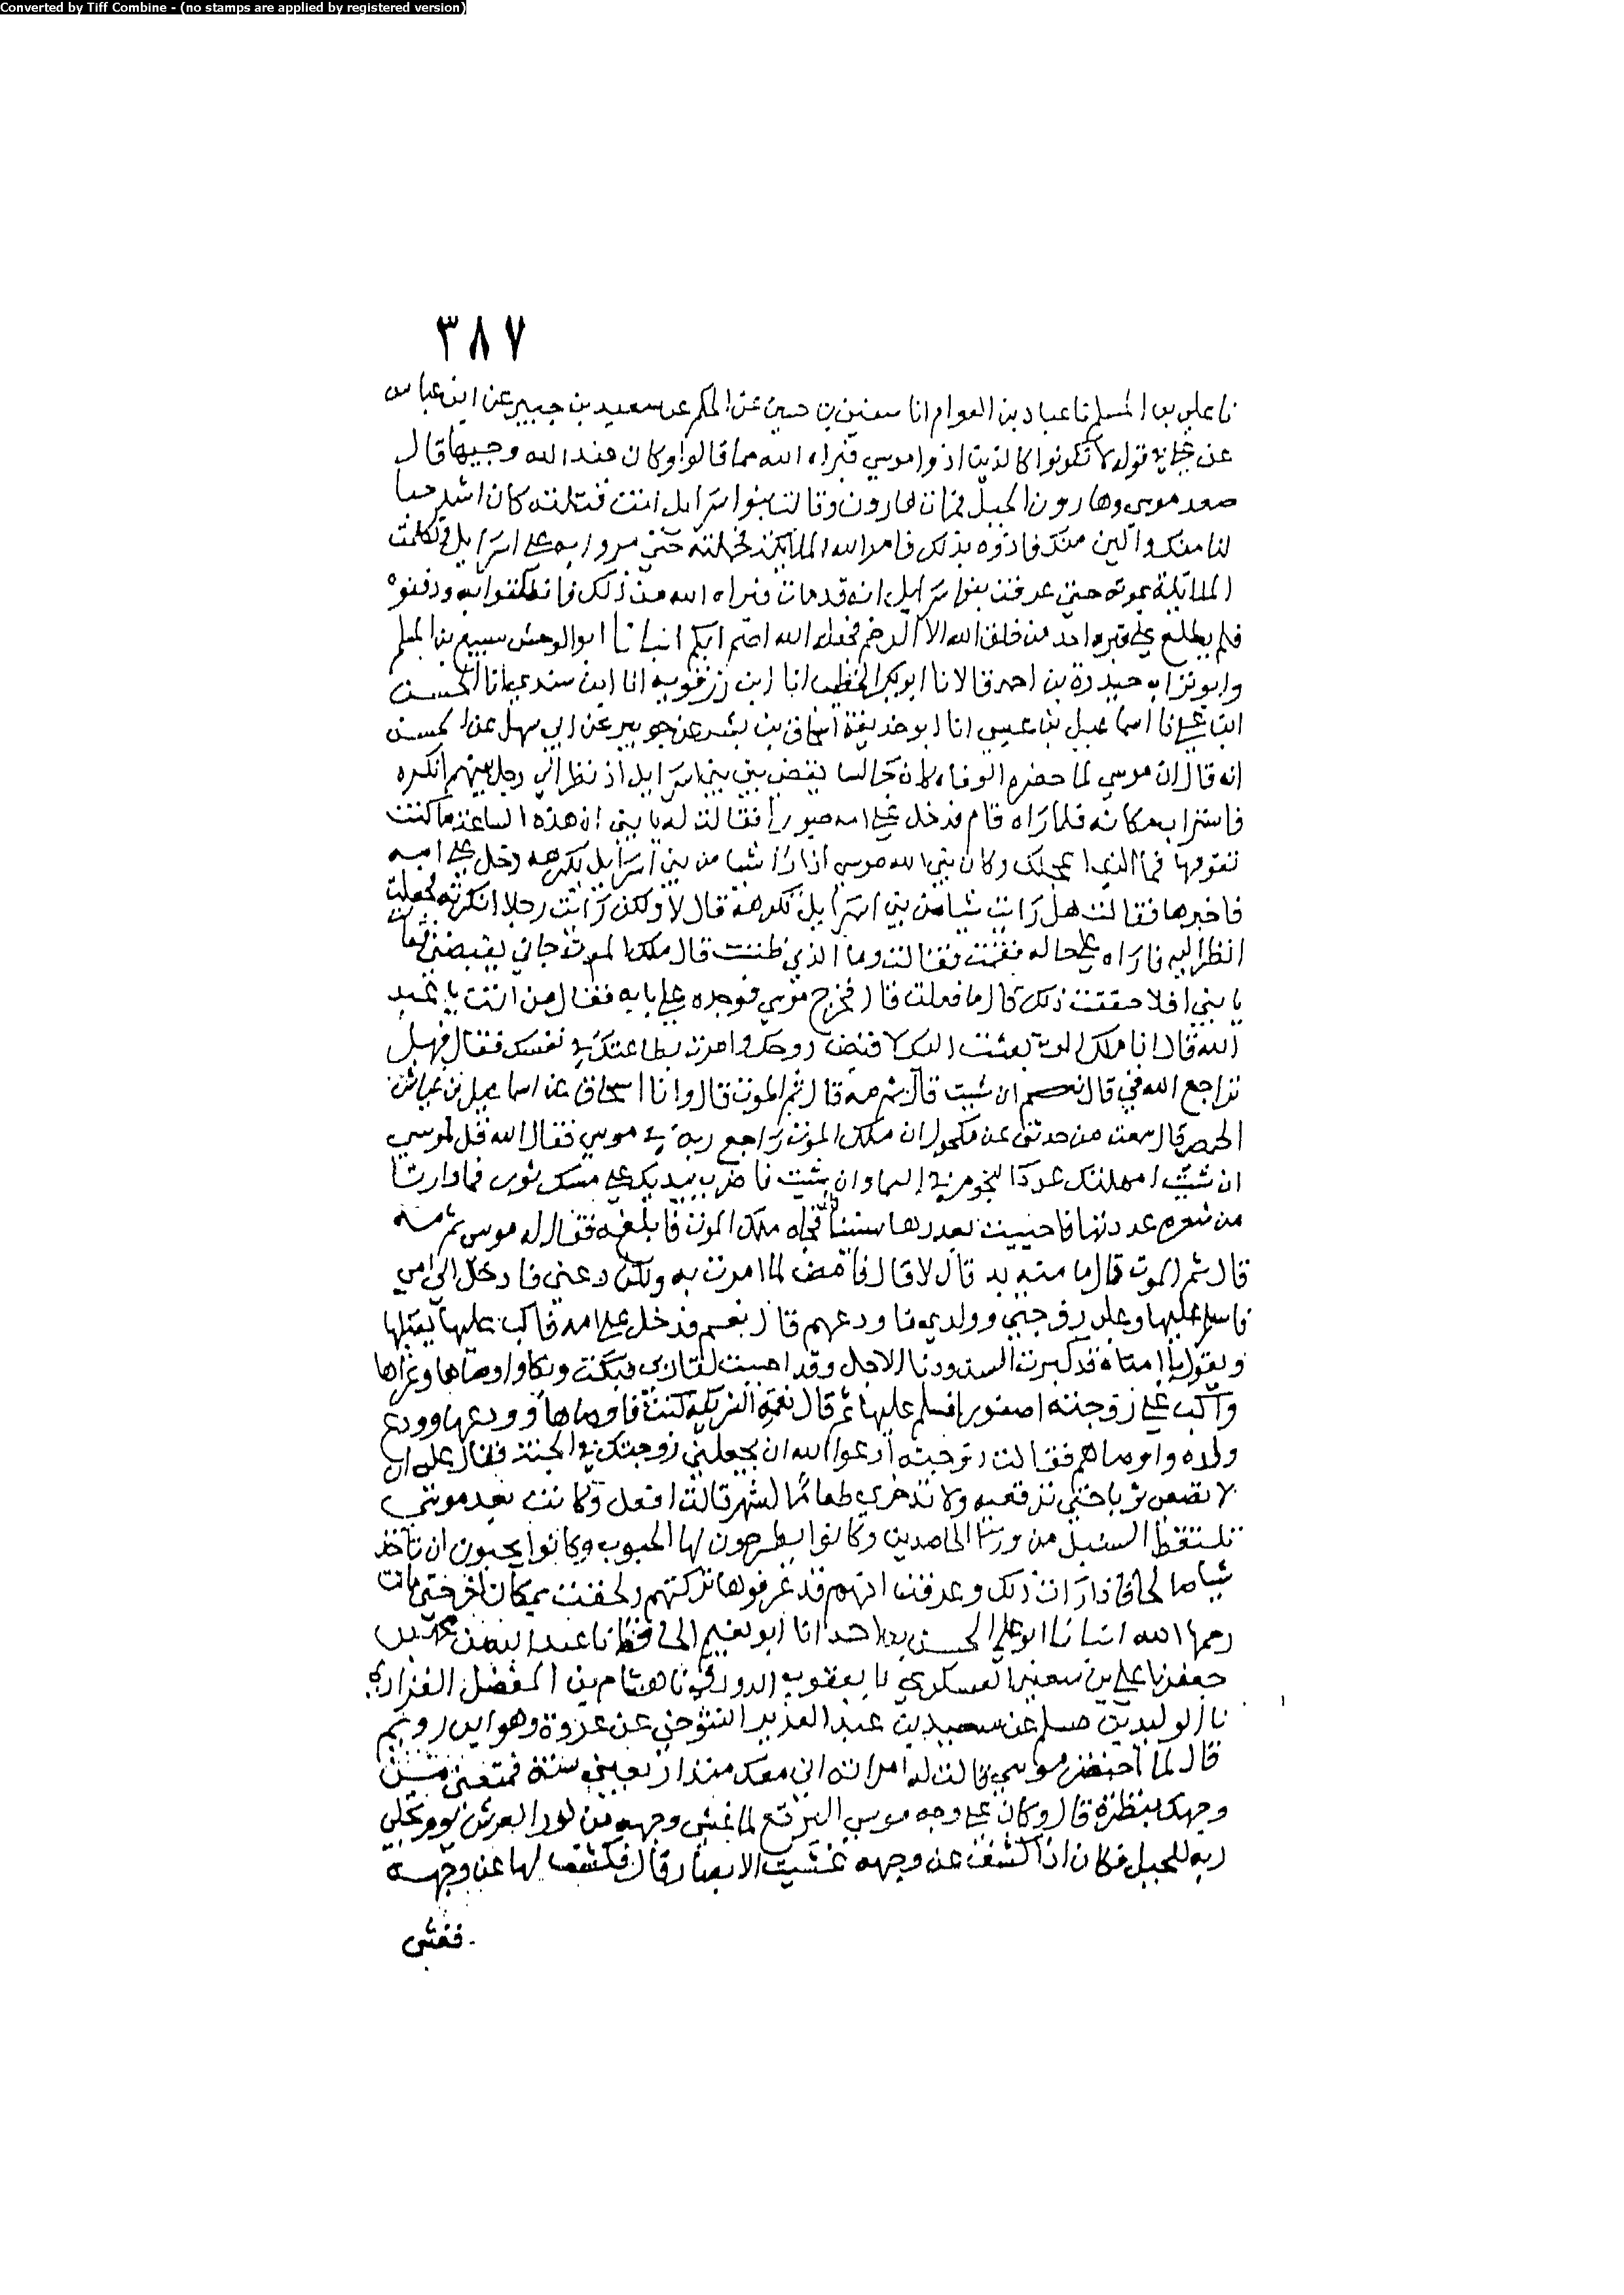 Converted by Tiff Combine - (no stamps are applied by registered version)
٣٨٧
نا علي بن المسلم نا عباد بن العوام انا سفين بن حسين عن الحكم عن سعيد بن جبير عن ابن عباس
عن علي في قوله لا تكونوا كالذين اذوا موسي فبراه الله مما قالوا وكان عند الله وجيها قال
صعد موسى وهارون الجبل فمات هارون وقالت بنوا سرايل انت قتلته كان اشد حبا
لنا منك والين منك فاذوه بذلك فامر الله الملايكة فحملته حتي مروا به علي اسرايل وتكلمت
الملايكة بموته حتي عرفت بنوا سرايل انه قد مات فبراه الله من ذلك فانطلقوا به ودفنوه
فلم يطلع علي قبره احد من خلق الله الا الرخم فجعله الله اصم ابكم انبانا ابو الوحش سبيع بن المسلم
وابو تراب حيدرة بن احمد قالا نا ابو بكر الخطيب انا ابن رزقويه انا ابن سندي انا الحسن
ابن علي نا اسماعيل بن عيسى انا ابو حذيفة اسحاق بن بشر عن جويبر عن ابي سهل عن الحسن
انه قال ان موسي لما حضره الوفاه كان جالسا يقضي بين بني اسرايل اذ نظر الي رجل بينهم انكره
فاستراب مكانه فلما راه قام فدخل علي امه صبورا فقالت له يا بني ان هذه الساعة ما كنت
تقومها فما الذي اعجلك وكان نبي الله موسي اذا راى شيا من بني اسرايل يكرهه دخل علي امه
فاخبرها فقالت هل رايت شيا من بني اسرايل تكرهه قال لا ولكن رايت رجلا انكرته فجعلت
انظر اليه فاراه علي حاله فقمت فقالت وما الذي ظننت قال ملك الموت جاني يقبضني قالت
يا بني افلا حققت ذلك قال ما فعلت قال فخرج موسي فوجده علي بابه فقال من انت يا عبد
الله قال انا ملك الموت بعثت اليك لاقبض روحك وامرت بطاعتك في نفسك فقال فهل
تراجع الله في قال نعم ان شيت قال ثم مه قال ثم الموت قال وانا اسحاق عن اسماعيل بن عياش
الحمصي قال سمعت من حدثني عن مكحول ان ملك الموت راجع ربه في موسي فقال الله قل لموسي
ان شيت امهلتك عدد النجوم في السما وان شيت فاضرب بيديك علي مسك ثور فما وارتا
من شعره عددتها فاحييت بعددها سنينا فجاه ملك الموت فابلغه فقال له موسى ثم مه
قال ثم الموت قال ما منه بد قال لا قال فامض لما امرت به ولكن دعني فادخل الى امي
فاسلم عليها وعلى زوجتي وولدي فاودعهم قال نعم فدخل علي امه فاكب عليها يقبلها
ويقول يا امتاه قد كبرت السن ودنا الاجل وقد احببت لقا ربي فبكت وبكا واوصاها وعزاها
واكب علي زوجته اصفورا فسلم عليها ثم قال نعم الشريكة كنت فاوصاها وودعها وودع
ولده واوصاهم فقالت زوجته ادعوا الله ان يجعلني زوجتك في الجنة فقال على ان
لا تضعي ثوبا حتى ترقعيه ولا تدخري طعاما لشهر قالت افعل وكانت بعد موسى
تلتقط السنبل من ورا الحاصدين وكانوا يطرحون لها الحبوب وكانوا يحبون ان تاخذ
شيا صالحا فاذا رات ذلك وعرفت انهم قد عرفوها تركتهم ولحقت بمكان اخر حتى ماتت
رحمها الله انبانا ابو علي الحسن بن احمد انا ابو نعيم الحافظ نا عبد الله بن محمد بن
جعفر نا علي بن سعيد العسكري نا يعقوب الدورقي نا هشام بن المفضل الفزاري
نا الوليد بن مسلم عن سعيد بن عبد العزيز التنوخي عن عروة وهو ابن رويم
قال لما احتضر موسي قالت له امراته اني معك منذ اربعين سنة فمتعني من
وجهك بنظرة قال وكان علي وجه موسي البرقع لما غشي وجهه من نور العرش يوم تجلي
ربه للجبل فكان اذا كشف عن وجهه غشيت الابصار قال فكشف لها عن وجهه
فغشى